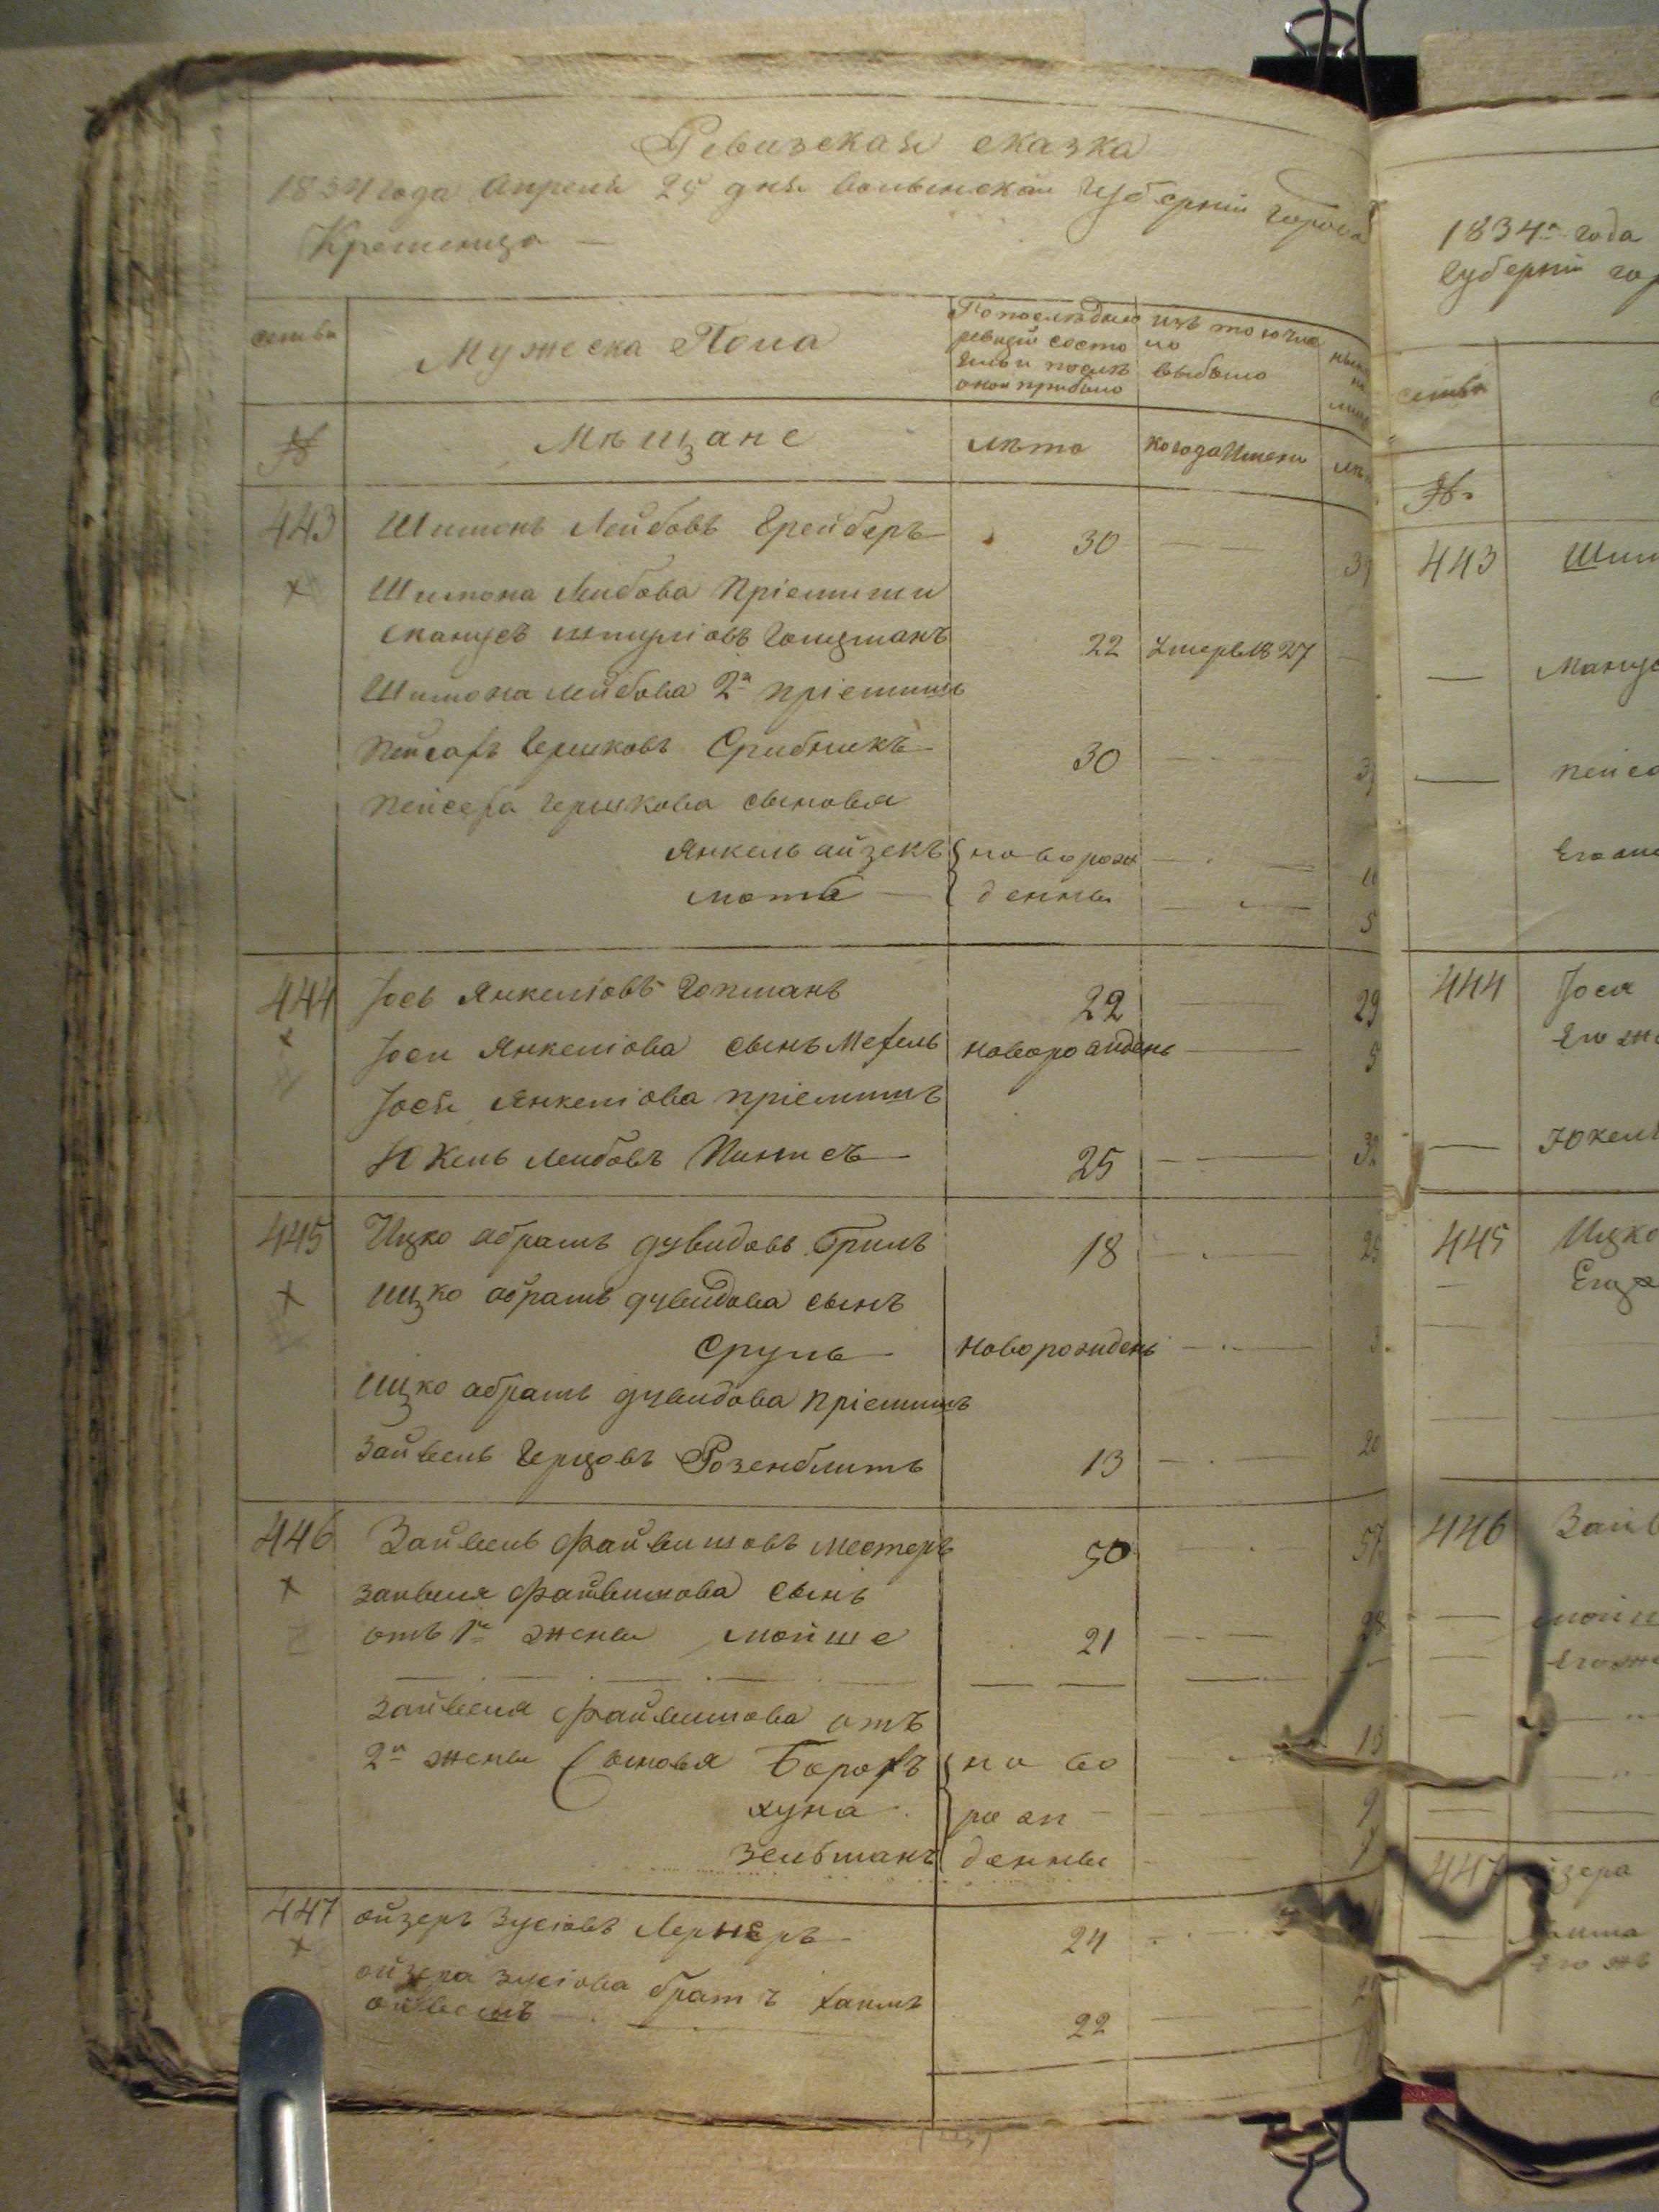 Ревизская сказка
1834 года Апреля 25 дня Волынской Губернии города
Кременца —
семьи
Мужеска Пола
По последней ревизии состояло и после оной прибыло
изъ того числа выбыло
№
Мѣщане
лѣта
Когда Именно
лѣ
443 Шимонъ Лейбовъ Грейберъ 30
Шимона Лейбова Пріемыши
22 Умеръ 1827
Шимона Лейбова 2й пріемышъ
Пейсахъ Гершковъ Срибникъ 30
Пейсаха Гершкова сыновья
Янкель айзекъ новорож
мотя денны 5
444 Іось Янкеліовъ Гопманъ 22 29
Іоси Янкеліова сынъ Мехель новорожденъ 5
Іося Янкеліова пріемышъ
Юкель Лейбовъ Пинисъ 25 32
445 Ицко абрамъ дувидовъ Бриль 18 25
ицко абрамъ дувидова сынъ
Сруль новорожденъ 3
ицко абрамъ дувидова пріемышъ
Зайвель Герцовъ Розенблитъ 13 20
446 Зайвель Файвишовъ Местеръ 50 57
зайвеля Файвишова сынъ
отъ 1й жены мойше 21 28
зайвеля Файвишова отъ
2й жены Сыновья Борохъ ново 13
хуна рож 9
зельманъ денны
447 ойзеръ Зусіовъ Лернеръ 24
ойзера зусіова братъ хаимъ
22
1834го года
Губерніи гор
семьи
№
443 Шим
— Манус
— пейса
Его
444 Іося
Его же
— Юкель
445 Ицко
Его
446 Зайв
— мойш
Его же
447 йзера
Его же